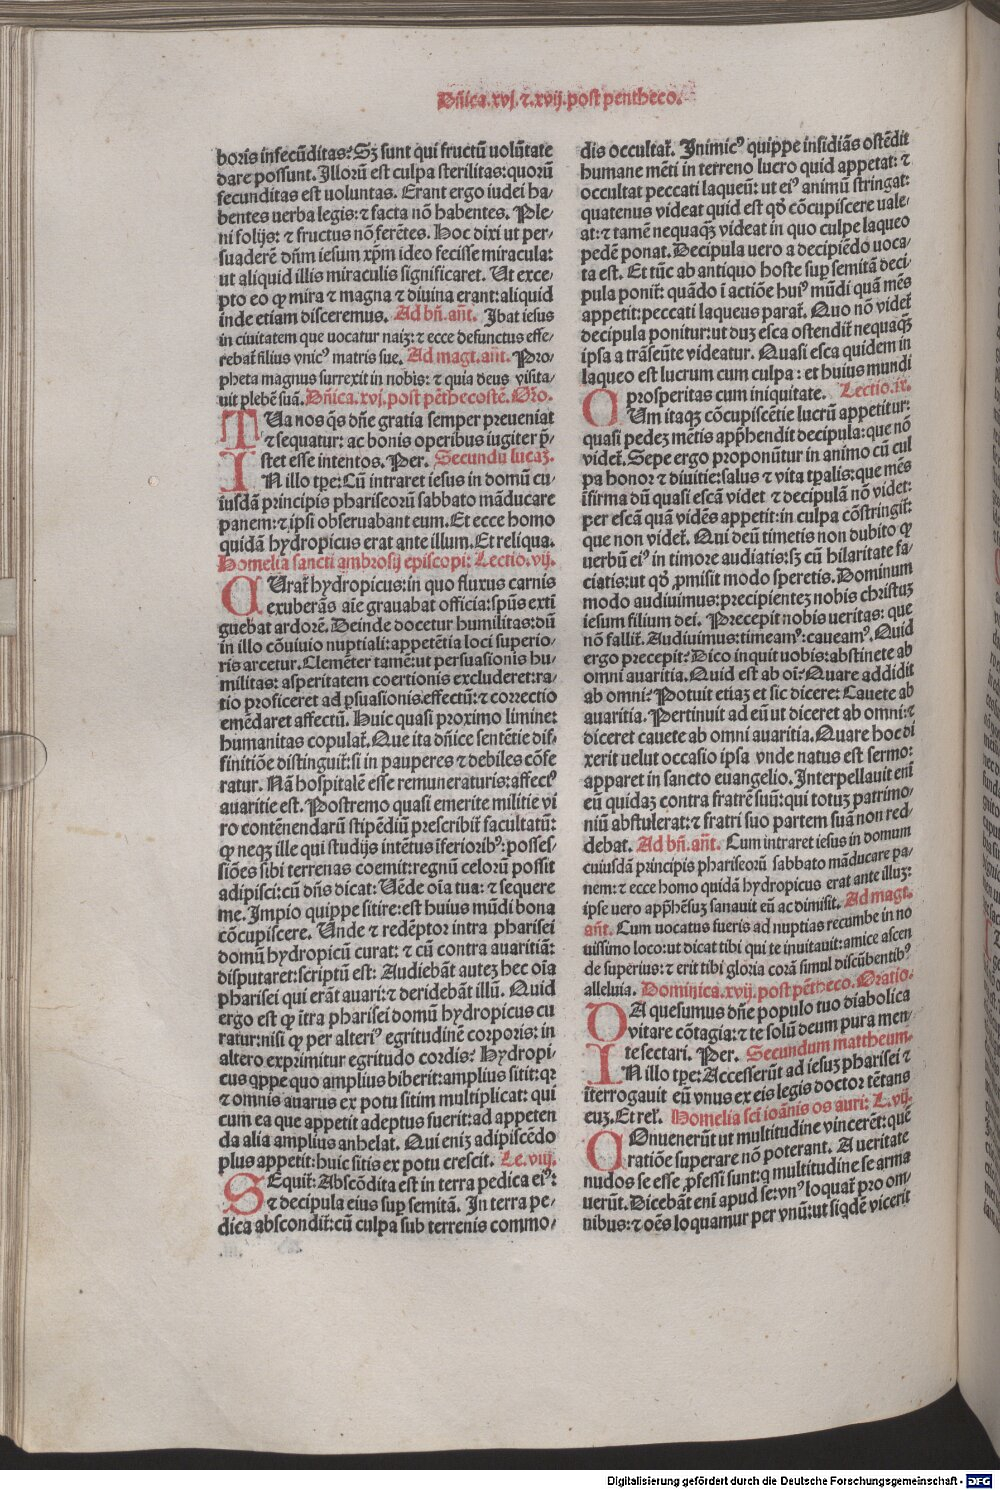 Dñica.xvj.⁊.xvij.post pentheco.
boris infecũditas? Sꝫ sunt qui fructũ uolũtate
dare possunt. Illorũ est culpa sterilitas: quorũ
fecunditas est uoluntas. Erant ergo iudei ha⸗
bentes uerba legis: ⁊ facta nõ habentes. Ple⸗
ni folijs: ⁊ fructus nõ ferẽtes. Hoc dixi ut per⸗
suaderẽ dñm iesum xp̃m ideo fecisse miracula:
ut aliquid illis miraculis significaret. Ut exce⸗
pto eo ꝙ mira ⁊ magna ⁊ diuina erant: aliquid
inde etiam disceremus. Ad bñ. añt. Ibat iesus
in ciuitatem que uocatur naiꝫ: ⁊ ecce defunctus effe⸗
rebat̃ filius vnicꝰ matris sue. Ad magt. añt. Pro⸗
pheta magnus surrexit in nobis: ⁊ quia deus visita⸗
uit plebẽ suã. Dñica.xvj.post pẽthecostẽ. Oro.
TUa nos q̃s dñe gratia semper preueniat
⁊ sequatur: ac bonis operibus iugiter p̃⸗
stet esse intentos. Per. Secundu lucaꝫ.
IN illo tp̃e: Cũ intraret iesus in domũ cu⸗
iusdã principis phariseorũ sabbato mãducare
panem: ⁊ ipsi obseruabant eum. Et ecce homo
quidã hydropicus erat ante illum. Et reliqua.
Homelia sancti ambrosij episcopi: Lectio.vij.
CUrat̃ hydropicus: in quo fluxus carnis
exuberãs aĩe grauabat officia: spũs extĩ
guebat ardorẽ. Deinde docetur humilitas: dũ
in illo cõuiuio nuptiali: appetẽtia loci superio⸗
ris arcetur. Clemẽter tamẽ: ut persuasionis hu⸗
militas: asperitatem coertionis excluderet: ra⸗
tio proficeret ad ꝑsuasionis effectũ: ⁊ correctio
emẽdaret affectũ. Huic quasi proximo limine:
humanitas copulat̃. Que ita dñice sentẽtie dif⸗
finitiõe distinguit̃: si in pauperes ⁊ debiles cõfe
ratur. Nã hospitalẽ esse remuneraturis: affectꝰ
auaritie est. Postremo quasi emerite militie vi
ro contẽnendarũ stipẽdiũ prescribit̃ facultatũ:
ꝙ neqꝫ ille qui studijs intẽtus ĩferioribꝰ: posses⸗
siões sibi terrenas coemit: regnũ celorũ possit
adipisci: cũ dñs dicat: Uẽde oĩa tua: ⁊ sequere
me. Impio quippe sitire: est huius mũdi bona
cõcupiscere. Unde ⁊ redẽptor intra pharisei
domũ hydropicũ curat: ⁊ cũ contra auaritiã:
disputaret: scriptũ est: Audiebãt auteꝫ hec oĩa
pharisei qui erãt auari: ⁊ deridebãt illũ. Quid
ergo est ꝙ ĩtra pharisei domũ hydropicus cu
ratur: nisi ꝙ per alteriꝰ egritudinẽ corporis: in
altero exprimitur egritudo cordis? Hydropi⸗
cus qꝑpe quo amplius biberit: amplius sitit: qꝛ
⁊ omnis auarus ex potu sitim multiplicat: qui
cum ea que appetit adeptus fuerit: ad appeten
da alia amplius anhelat. Qui eniꝫ adipiscẽdo
plus appetit: huic sitis ex potu crescit. Le.viij.
SEquit̃: Abscõdita est in terra pedica eiꝰ:
⁊ decipula eius suꝑ semitã. In terra pe⸗
dica abscondit̃: cũ culpa sub terrenis commo⸗
dis occultat̃. Inimicꝰ quippe insidiãs ostẽdit
humane mẽti in terreno lucro quid appetat: ⁊
occultat peccati laqueũ: ut eiꝰ animũ stringat:
quatenus videat quid est qð cõcupiscere uale⸗
at: ⁊ tamẽ nequaqꝫ videat in quo culpe laqueo
pedẽ ponat. Decipula uero a decipiẽdo uoca⸗
ta est. Et tũc ab antiquo hoste suꝑ semitã deci⸗
pula ponit̃: quãdo ĩ actiõe huiꝰ mũdi quã mẽs
appetit: peccati laqueus parat̃. Quo nõ videt̃
decipula ponitur: ut duꝫ esca ostendit̃ nequaqꝫ
ipsa a trãseũte videatur. Quasi esca quidem in
laqueo est lucrum cum culpa: et huius mundi
prosperitas cum iniquitate. Lectio.ix.
CUm itaqꝫ cõcupiscẽtie lucrũ appetitur:
quasi pedeꝫ mẽtis app̃hendit decipula: que nõ
videt̃. Sepe ergo proponũtur in animo cũ cul
pa honor ⁊ diuitie: salus ⁊ vita tp̃alis: que mẽs
ĩfirma dũ quasi escã videt ⁊ decipulã nõ videt:
per escã quã vidẽs appetit: in culpa cõstringit̃:
que non videt̃. Qui deũ timetis non dubito ꝙ
uerbũ eiꝰ in timore audiatis: sꝫ cũ hilaritate fa⸗
ciatis: ut qð ꝓmisit modo speretis. Dominum
modo audiuimus: precipienteꝫ nobis christuꝫ
iesum filium dei. Precepit nobis ueritas: que
nõ fallit̃. Audiuimus: timeamꝰ: caueamꝰ. Quid
ergo precepit? Dico inquit uobis: abstinete ab
omni auaritia. Quid est ab oĩ? Quare addidit
ab omni? Potuit etiaꝫ et sic dicere: Cauete ab
auaritia. Pertinuit ad eũ ut diceret ab omni: ⁊
diceret cauete ab omni auaritia. Quare hoc di
xerit uelut occasio ipsa vnde natus est sermo:
apparet in sancto euangelio. Interpellauit enĩ
eũ quidaꝫ contra fratrẽ suũ: qui totuꝫ patrimo⸗
niũ abstulerat: ⁊ fratri suo partem suã non red⸗
debat. Ad bñ. añt. Cum intraret iesus in domum
cuiusdã principis phariseorũ sabbato mãducare pa⸗
nem: ⁊ ecce homo quidã hydropicus erat ante illuꝫ:
ipse uero app̃hẽsuꝫ sanauit eũ ac dimisit. Ad magt.
añt. Cum uocatus fueris ad nuptias recumbe in no
uissimo loco: ut dicat tibi qui te inuitauit: amice ascen
de superius: ⁊ erit tibi gloria corã simul discũbentibꝰ
alleluia. Dominica.xvij.post pẽtheco. Oratio.
DA quesumus dñe populo tuo diabolica
vitare cõtagia: ⁊ te solũ deum pura men⸗
te sectari. Per. Secundum mattheum.
IN illo tp̃e: Accesserũt ad iesuꝫ pharisei ⁊
ĩterrogauit eũ vnus ex eis legis doctor tẽtans
euꝫ. Et rel̃. Homelia scĩ ioãnis os auri: L.vij.
COnuenerũt ut multitudine vincerẽt: quẽ
ratiõe superare nõ poterant. A ueritate
nudos se esse ꝓfessi sunt: q̃ multitudine se arma
uerũt. Dicebãt enĩ apud se: vnꝰ loquat̃ pro om⸗
nibus: ⁊ oẽs loquamur per vnũ: ut siqdẽ vicerit
Digitalisierung gefördert durch die Deutsche Forschungsgemeinschaft - DFG